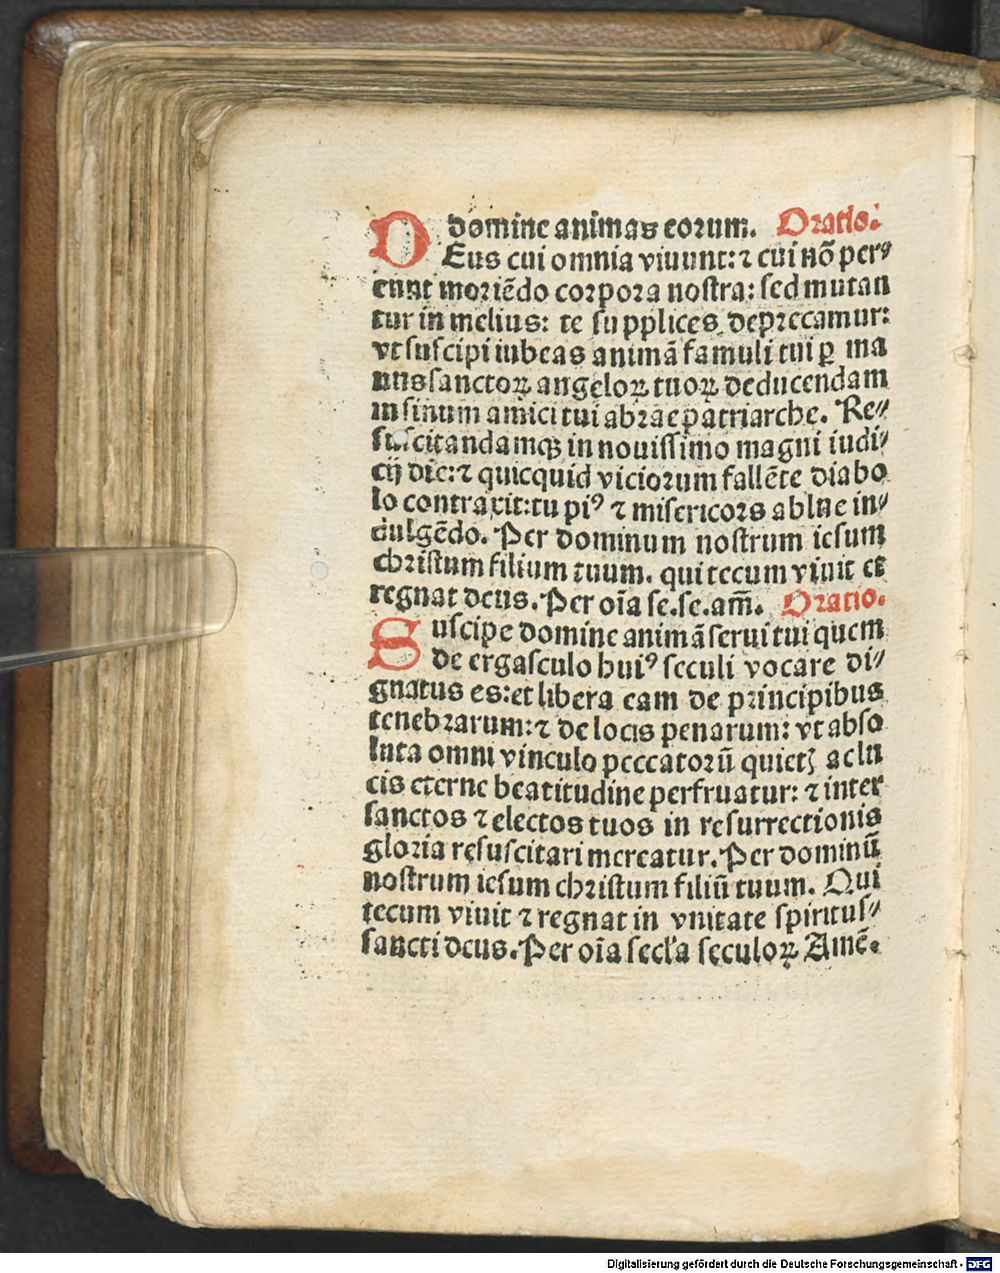 domine animas eorum. Oratio.
DEus cui omnia viuunt: ⁊ cui nō per⸗
eunt moriēdo corpora nostra: sed mutan
tur in melius: te supplices deprecamur:
vt suscipi iubeas animā famuli tui ꝑ ma
nus sanctoꝝ angeloꝝ tuoꝝ deducendam
in sinum amici tui abrae patriarche. Re⸗
suscitandamqꝫ in nouissimo magni iudi⸗
cij die: ⁊ quicquid viciorum fallēte diabo
lo contraxit: tu piꝰ ⁊ misericors ablue in⸗
dulgēdo. Per dominum nostrum iesum
christum filium tuum. qui tecum viuit et
regnat deus. Per oīa se. se. am̄. Oratio.
Suscipe domine animā serui tui quem
de ergasculo huiꝰ seculi vocare di⸗
gnatus es: et libera eam de principibus
tenebrarum: ⁊ de locis penarum: vt abso
luta omni vinculo peccatorū quietꝫ ac lu
cis eterne beatitudine perfruatur: ⁊ inter
sanctos ⁊ electos tuos in resurrectionis
gloria resuscitari mereatur. Per dominū
nostrum iesum christum filiū tuum. Qui
tecum viuit ⁊ regnat in vnitate spiritus⸗
sancti deus. Per oīa secl'a seculoꝝ Amē.
Digitalisierung gefördert durch die Deutsche Forschungsgemeinschaft - DFG